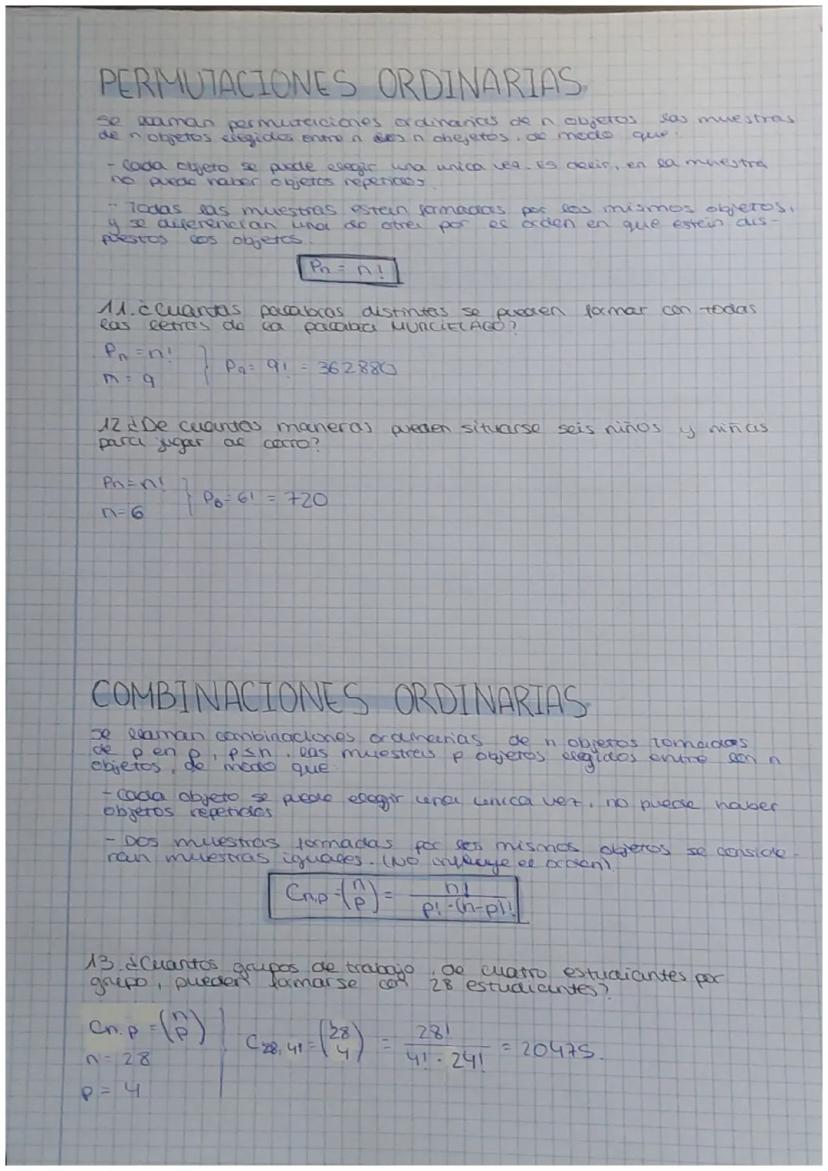 PERMUTACIONES ORDINARIAS
Se llaman permutaciones ordinarias de n objetos las muestras
de n objetos elegidos entre n los n obejetos, de modo que:
- Cada objeto se puede elegir una unica vez. Es decir, en la muestra
no puede haber objetos repetidos.
- Todas las muestras están formadas por los mismos objetos,
y se diferencian una de otra por el orden en que están dis-
puestos los objetos.
Pn = n!
11. ¿Cuantas palabras distintas se pueden formar con todas
las letras de la palabra MURCIELAGO?
Pn = n!
n = 9
P9 = 9! = 362880
12 ¿De cuantas maneras pueden situarse seis niños y niñas
para jugar al corro?
Pn = n!
n = 6
P6 = 6! = 720
COMBINACIONES ORDINARIAS
Se llaman combinaciones ordinarias de n objetos tomados
de p en p, p≤n, las muestras p objetos elegidos entre con n
objetos, de modo que:
- Cada objeto se puede elegir una unica vez, no puede haber
objetos repetidos
- Dos muestras formadas por los mismos objetos se conside-
ran muestras iguales. (No influye el orden)
Cn,p = (n p) = n! / p! · (n-p)!
13. ¿Cuantos grupos de trabajo, de cuatro estudiantes por
grupo, pueden formarse con 28 estudiantes?
Cn,p = (n p)
n = 28
p = 4
C28,4! = (28 4) = 28! / 4! · 24! = 20475.